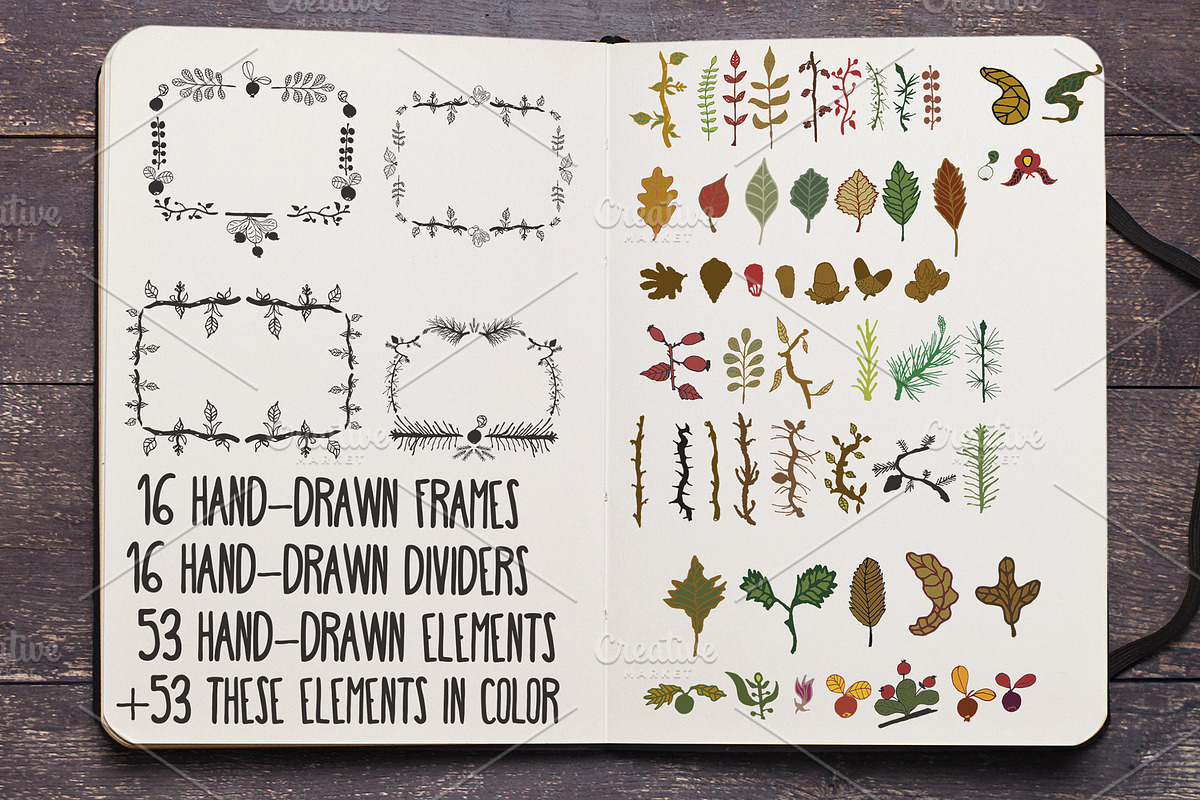 16 HAND-DRAWN FRAMES
16 HAND-DRAWN DIVIDERS
53 HAND-DRAWN ELEMENTS
+53 THESE ELEMENTS IN COLOR
Creative
MARKET